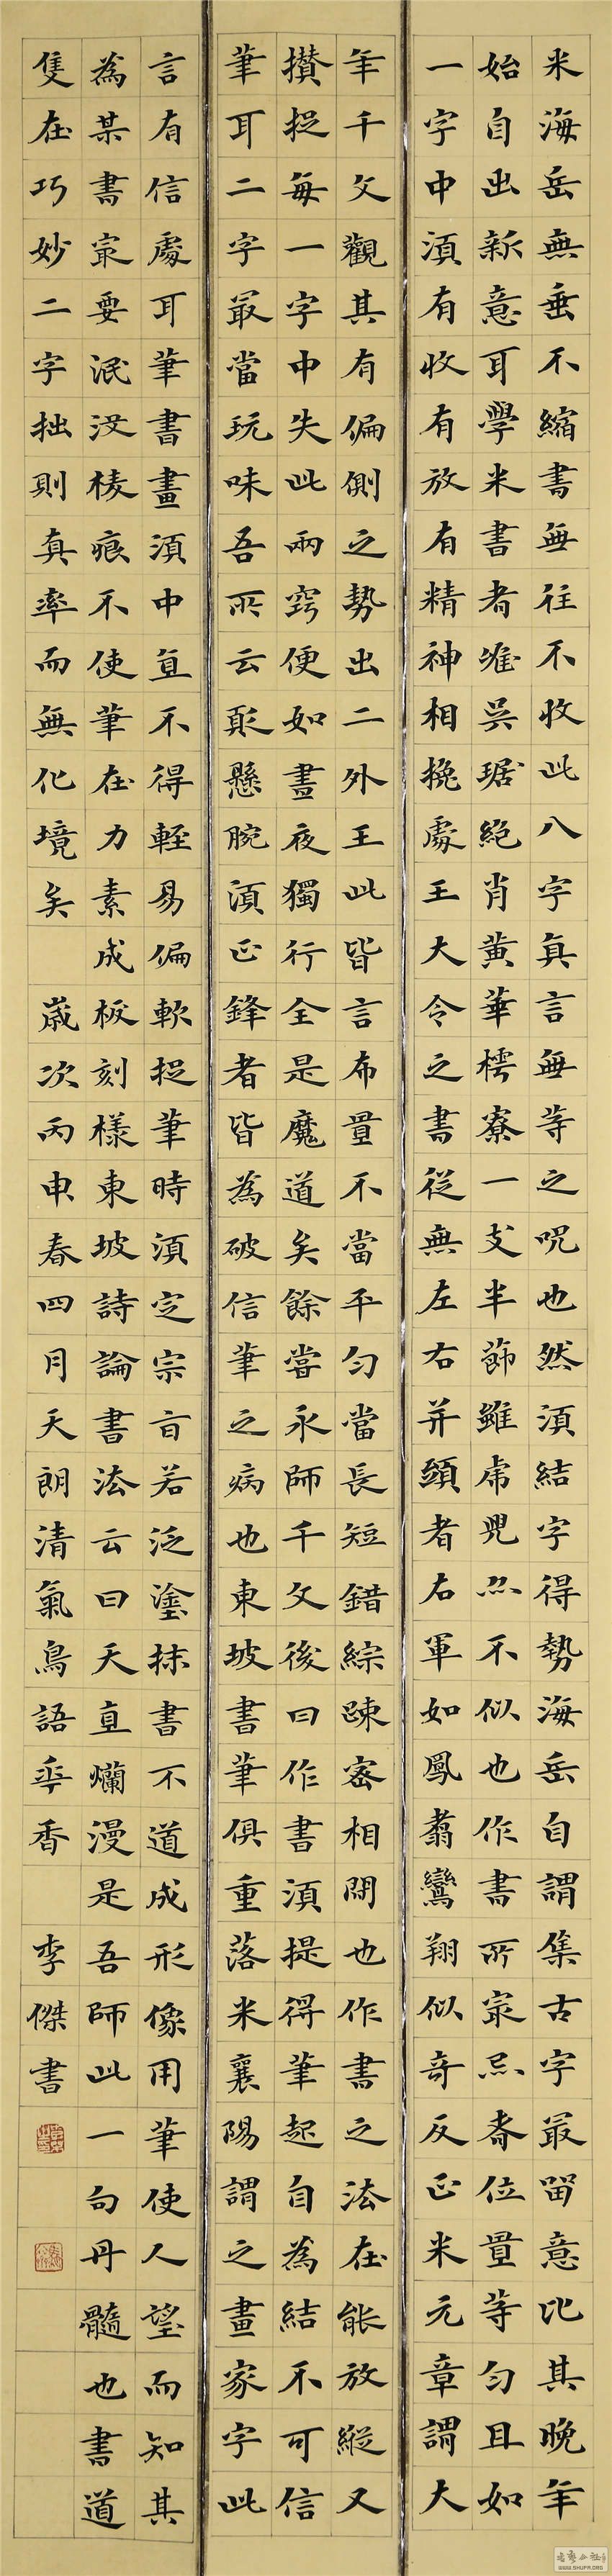 米海岳無垂不縮書無往不收此八字真言無等之呪也然須結字得勢海岳自謂集古字最留意比其晚年
始自出新意耳學米書者唯吳琚絕肖黃華樗寮一支半節雖虎兕亦不似也作書所最忌者位置等勻且如
一字中須有收有放有精神相挽處王大令之書從無左右并頭者右軍如鳳翥鸞翔似奇反正米元章謂大
年千文觀其有偏側之勢出二外王此皆言布置不當平勻當長短錯綜疎密相間也作書之法在能放縱又
攢捉每一字中失此兩竅便如晝夜獨行全是魔道矣餘嘗永師千文後曰作書須提得筆起自為結不可信
筆耳二字最當玩味吾所云聚懸腕須正鋒者皆為破信筆之病也東坡書筆俱重落米襄陽謂之畫家字此
言有信處耳筆書畫須中直不得輕易偏軟捉筆時須定宗旨若泛塗抹書不道成形像用筆使人望而知其
為某書最要泯沒棱痕不使筆在力素成板刻樣東坡詩論書法云曰天真爛漫是吾師此一句丹髓也書道
隻在巧妙二字拙則真率而無化境矣 歲次丙申春四月天朗清氣鳥語華香 李傑書